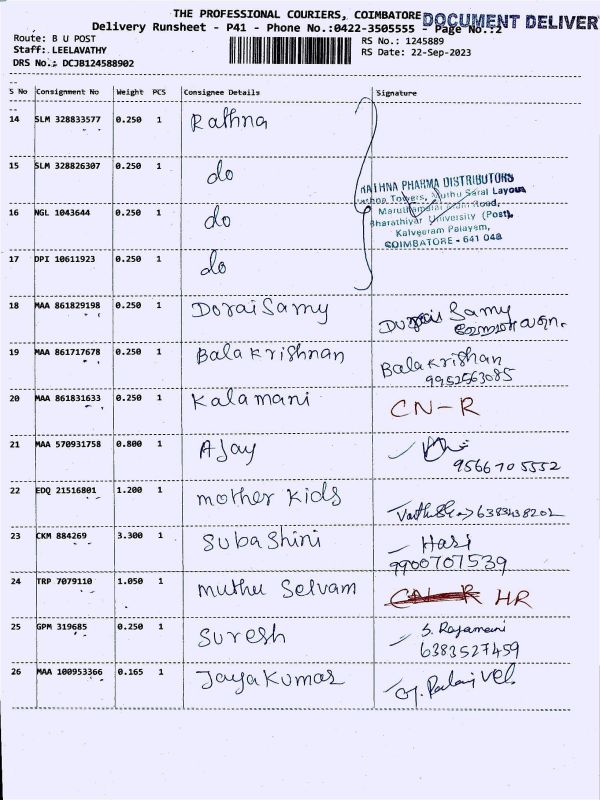 THE PROFESSIONAL COURIERS, COIMBATORE DOCUMENT DELIVERY
Delivery Runsheet - P41 - Phone No.:0422-3505555 - Page No.:2
Route: B U POST
Staff: LEELAVATHY
DRS No.: DCJB124588902
RS No.: 1245889
RS Date: 22-Sep-2023
S No Consignment No Weight PCS Consignee Details Signature
14 SLM 328833577 0.250 1 Rathna
15 SLM 328826307 0.250 1 do
16 NGL 1043644 0.250 1 do
17 DPI 10611923 0.250 1 do
RATHNA PHARMA DISTRIBUTORS
Rathna Towers, Muthu Saral Layout
Maruthamalai Main Road,
Bharathiyar University (Post),
Kalveeram Palayam,
COIMBATORE - 641 046
18 MAA 861829198 0.250 1 Dorai Samy Durai Samy
19 MAA 861717678 0.250 1 Bala krishnan Bala krishan
9952563085
20 MAA 861831633 0.250 1 Kalamani CN-R
21 MAA 570931758 0.800 1 AJay
9566705552
22 EDQ 21516801 1.200 1 mother kids
23 CKM 884269 3.300 1 Subashini Hari
9900707539
24 TRP 7079110 1.050 1 muthu Selvam CN-R HR
25 GPM 319685 0.250 1 Suresh S. Rajamani
6383527459
26 MAA 100953366 0.165 1 Jayakumar